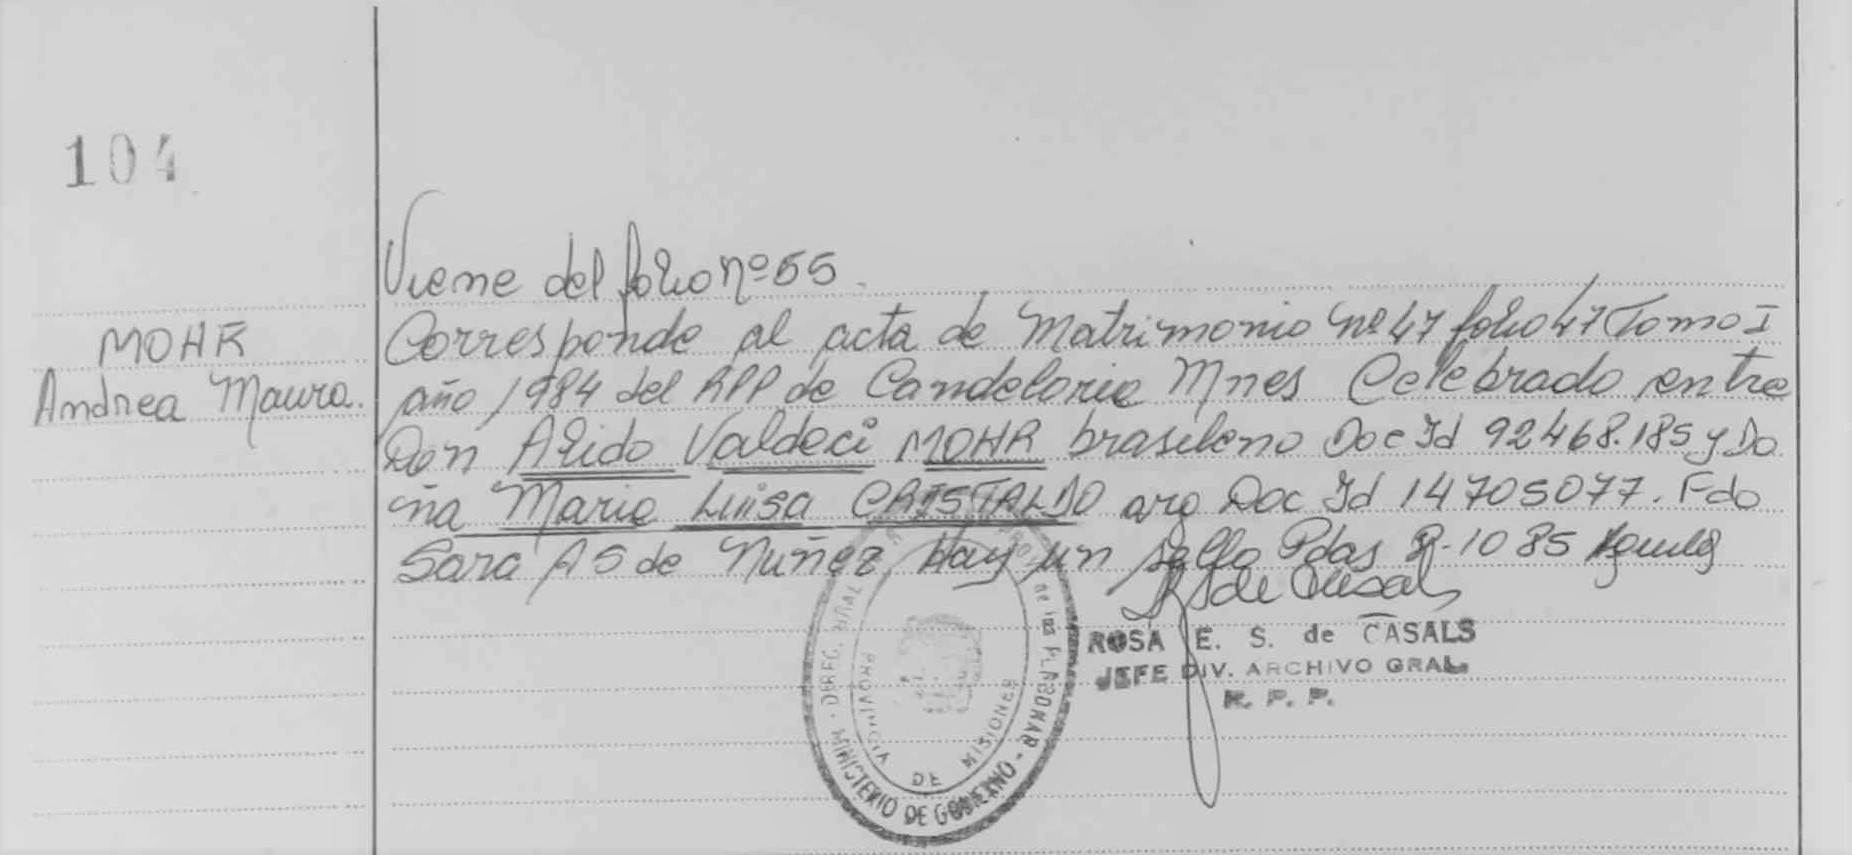 104
Viene del folio nº 55.
MOHR
Andrea Maura.
Corresponde al acta de Matrimonio Nº 47 folio 47 Tomo I
año 1984 del RPP de Candelaria Mnes Celebrado entre
Don Alido Valdeci MOHR brasileno Doc Id 92468.185 y Do
ña Maria Luisa CRISTALDO arg Doc Id 14705077. Fdo
Sara AS de Nuñez Hay un sello Pdas 8-10 85
ROSA E. S. de CASALS
JEFE DIV. ARCHIVO GRAL.
R. P. P.
MINISTERIO DE GOBIERNO
PROVINCIA DE MISIONES